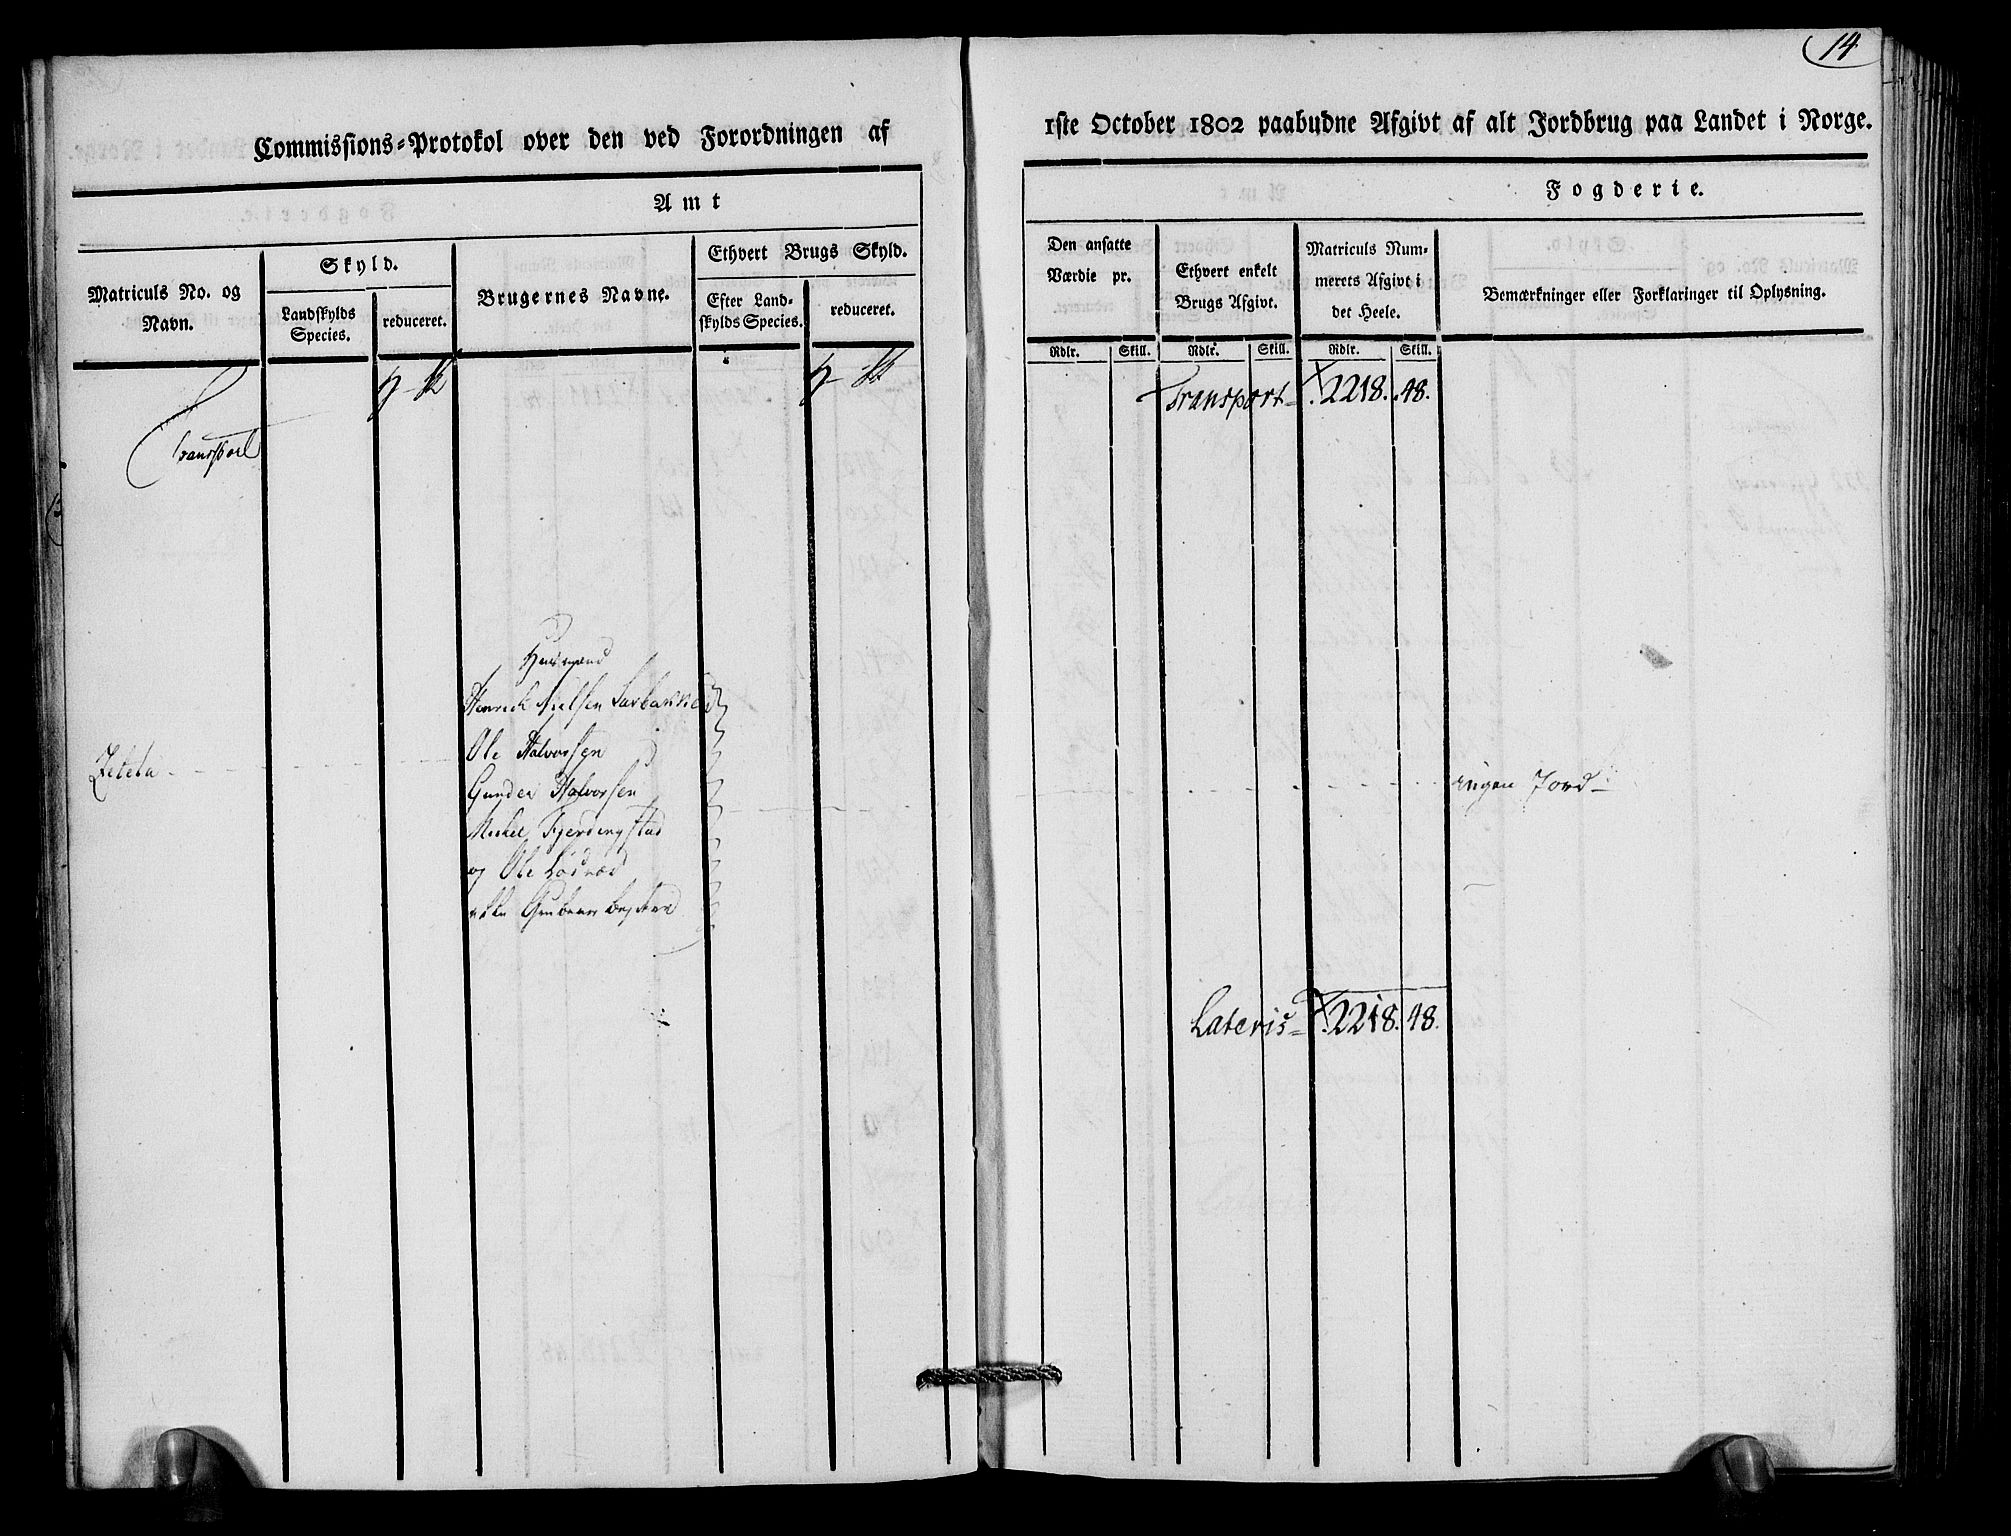 14
Commissions-Protokol over den ved Forordningen af
1ste October 1802 paabudne Afgivt af alt Jordbrug paa Landet i Norge.
Amt
Fogderie.
Matriculs No. og
Navn.
Skyld.
Landskylds
Species.
reduceret.
Brugernes Navne.
Ethvert Brugs Skyld.
Efter Land-
skylds Species.
reduceret.
Den ansatte
Værdie pr.
Ethvert enkelt
Brugs Afgivt.
Matriculs Num-
merets Afgivt i
det Heele.
Bemærkninger eller Forklaringer til Oplysning.
Rdlr. Skill. Rdlr. Skill. Rdlr. Skill.
Transport
Transport 2218. 48.
Husmænd
Henrich Nielsen
Ole Halvorsen
Gunder Halvorsen
Michel Fjerdingstad
og Ole
ingen Jord
Lateris 2218. 48.